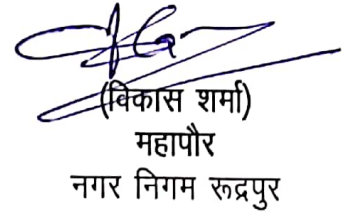 (विकास शर्मा)
महापौर
नगर निगम रूद्रपुर